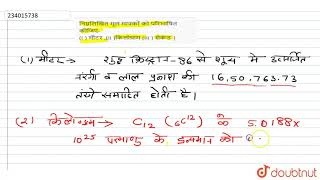 234015738
निम्नलिखित मूल मात्रकों को परिभाषित
कीजिए-
(i) मीटर (ii) किलोग्राम (iii) सेकण्ड।
(1) मीटर →
86 से शून्य में उत्सर्जित
तरंगों व लाल प्रकाश की 16,50,763.73
तरंगें समाहित होती हैं।
(2) किलोग्राम → C12 (6C12) के 5.0188x
10 25 परमाणु के द्रव्यमान को
doubtnut